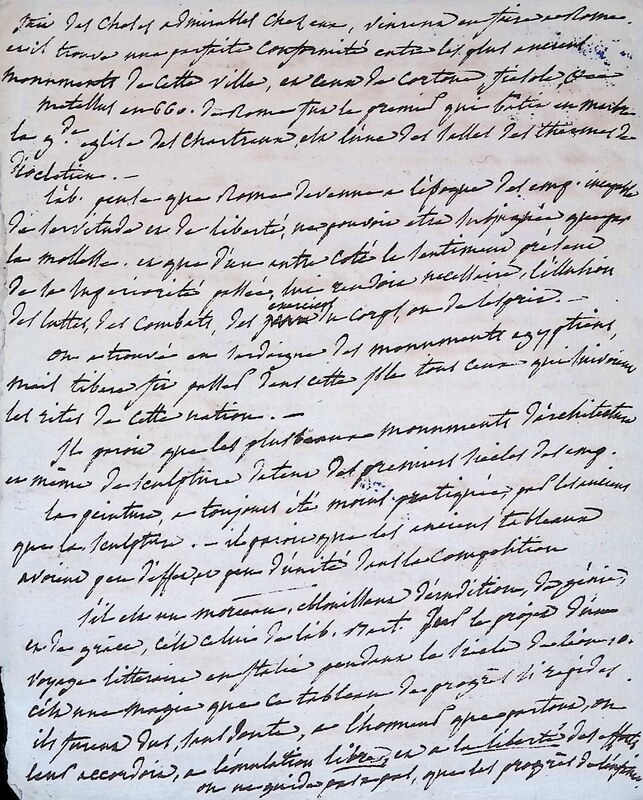 fait des choses admirables chez eux, vinrent en faire a Rome.
et il trouve une parfaite conformité entre les plus anciens
monuments de cette ville, et ceux de cortone, fiesole,
metellus en 660. de Rome fut le premier qui batit en marbre
la gde. eglise des chartreux, est l'une des salles des thermes de
dioclétien. —
l'ab. pense que Rome devenue a l'époque des emp. incapable
de servitude et de liberté, ne pouvoit etre subjuguée que par
la mollesse. et que d'un autre coté le sentiment présent
de la supériorité passée, lui rendoit necessaire, l'illusion
des luttes, des combats, des exercices du corps, ou de l'esprit. —
on a trouvé en sardaigne des monuments egyptiens,
mais tibere fit passer dans cette isle tous ceux qui suivoient
les rites de cette nation. —
Il paroit que les plus beaux monuments d'architecture
et même de sculpture datent des premiers siècles des emp.
la peinture, a toujours été moins pratiquée, par les anciens
que la sculpture. — il paroit que les anciens tableaux
avoient peu d'effet, et peu d'unité dans la composition
s'il est un morceau, étincellant d'érudition, de génie,
et de grâce, c'est celui de l'ab. Bart. sur le projet d'un
voyage litteraire en italie pendant le siècle de Léon, 10.
c'est une magie que ce tableau de progrès si rapides.
ils furent dus, sans doute, a l'honneur que partout, on
leur accordoit, a l'émulation libre, et a la liberté des efforts
on ne guida pas a pas, que les progrès de l'enfance